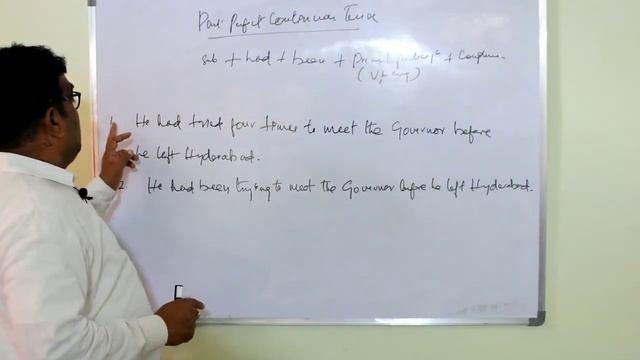 Past Perfect Continuous Tense
Sub + had + been + Present participle + Complement
(V1 + ing)
1. He had tried four times to meet the Governor before
he left Hyderabad.
2. He had been trying to meet the Governor before he left Hyderabad.